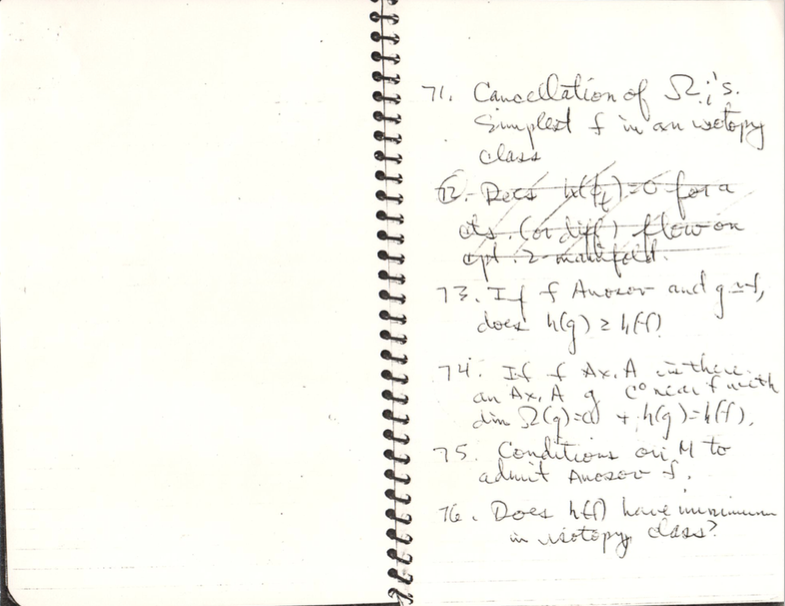 71. Cancellation of Ωi's.
Simplest f in an isotopy
class
72. Does h(φt)=0 for a
cts. (or diff) flow on
cpt. 2-manifold.
73. If f Anosov and g≃f,
does h(g) ≥ h(f)?
74. If f Ax. A is there
an Ax. A g C⁰ near f with
dim Ω(g)=0 + h(g)=h(f).
75. Conditions on M to
admit Anosov f.
76. Does h(f) have minimum
in isotopy class?